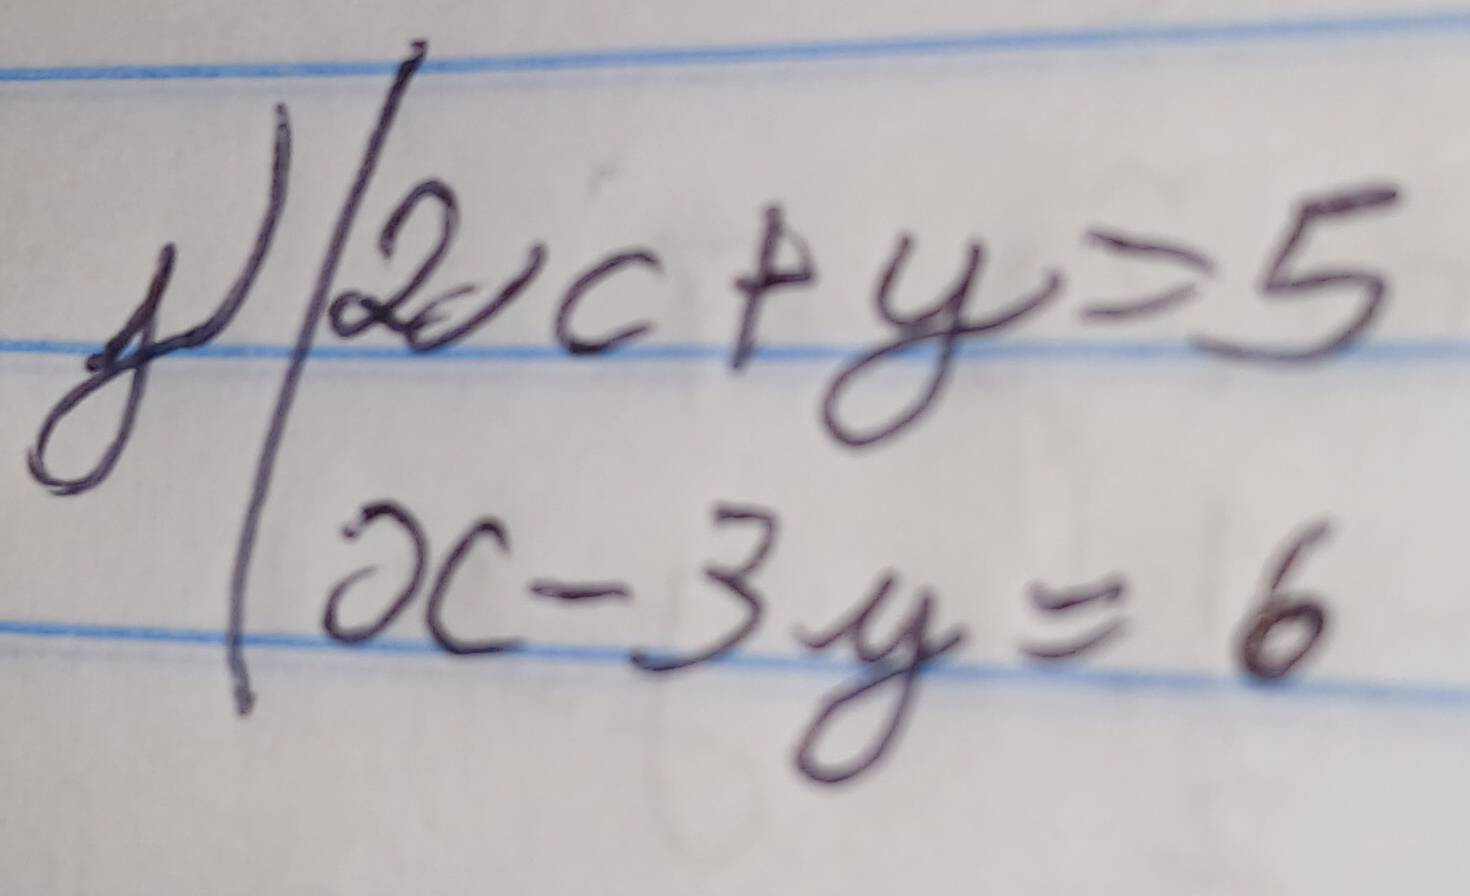 y) 2x + y = 5
x - 3y = 6